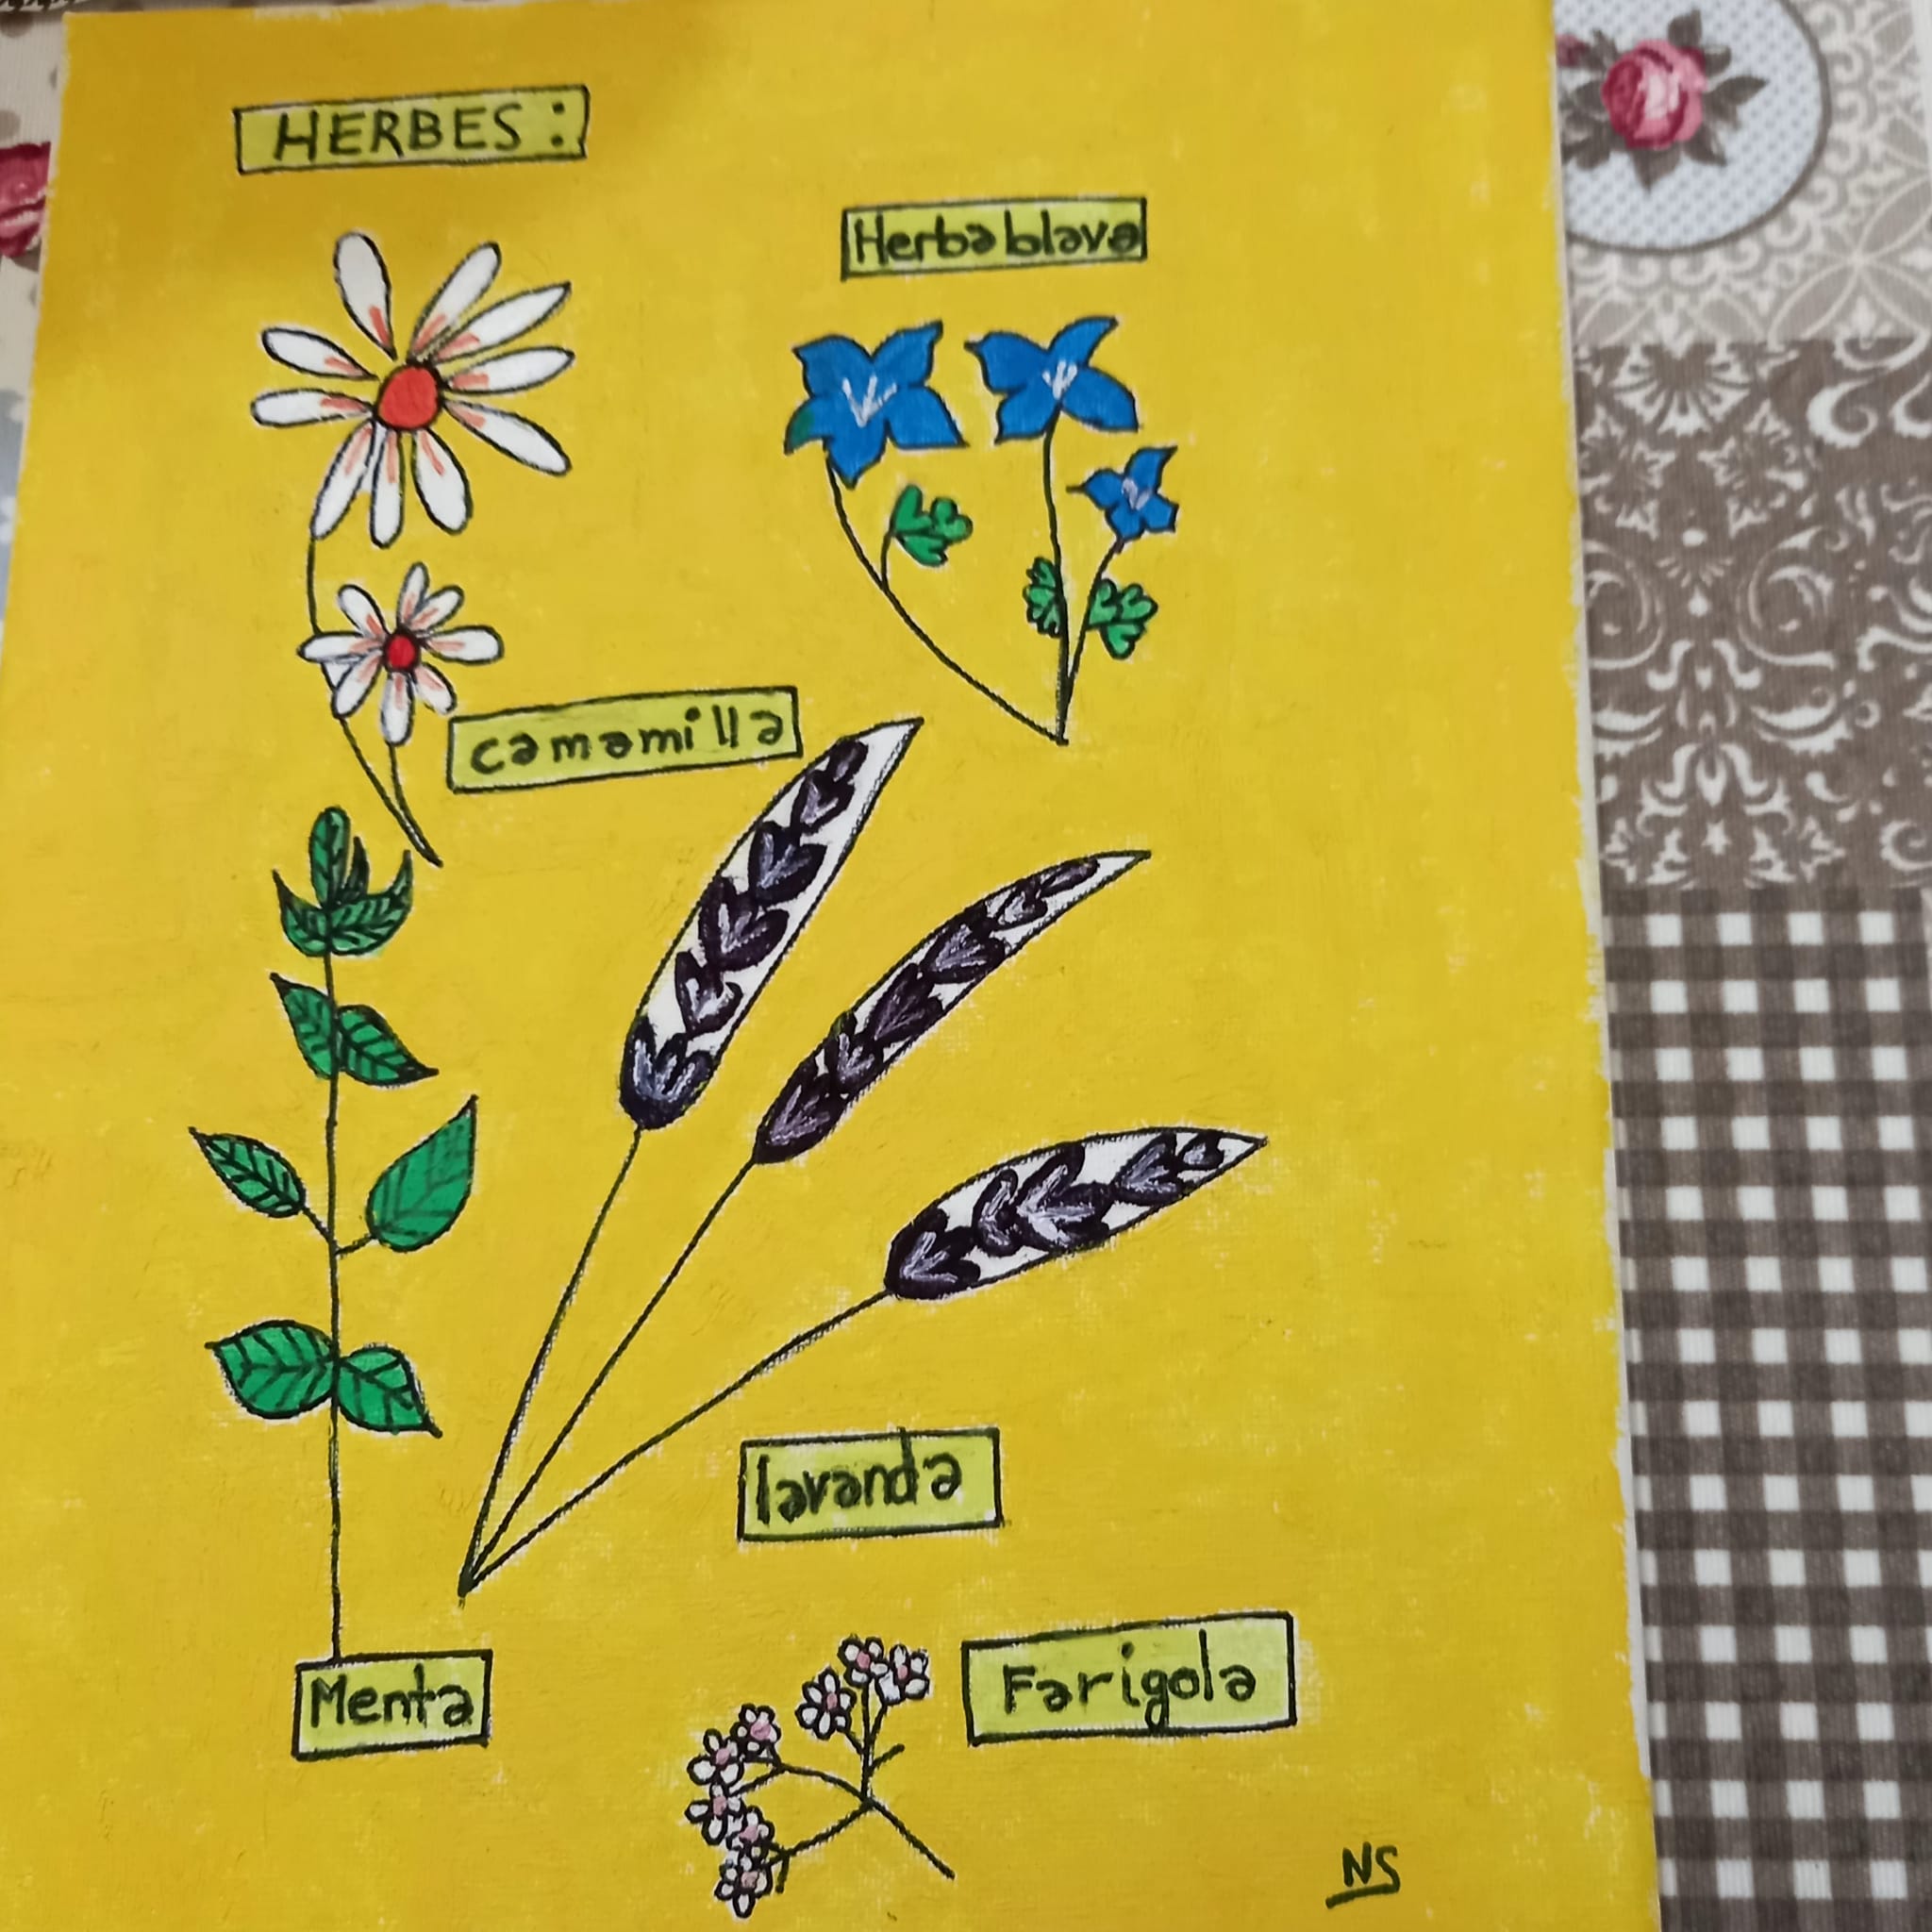 HERBES:
Herba blava
camamilla
lavanda
Menta
Farigola
NS